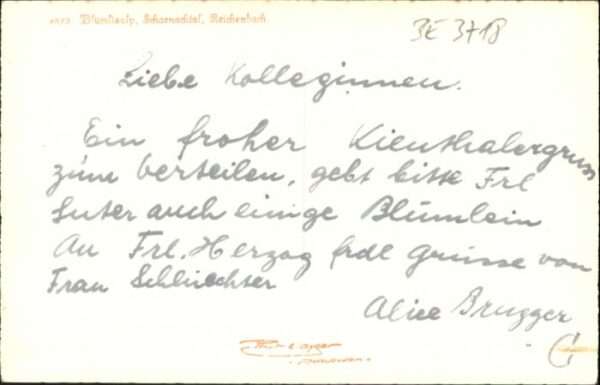 Blümlisalp, Scharnachtal, Reichenbach
BE 3718
Liebe Kolleginnen.
Ein froher Kienthalergruss
züm verteilen, gebt bitte Frl
Suter auch einige Blümlein
An Frl. Herzog frdl grüsse von
Frau Schlüechter
Alice Brugger